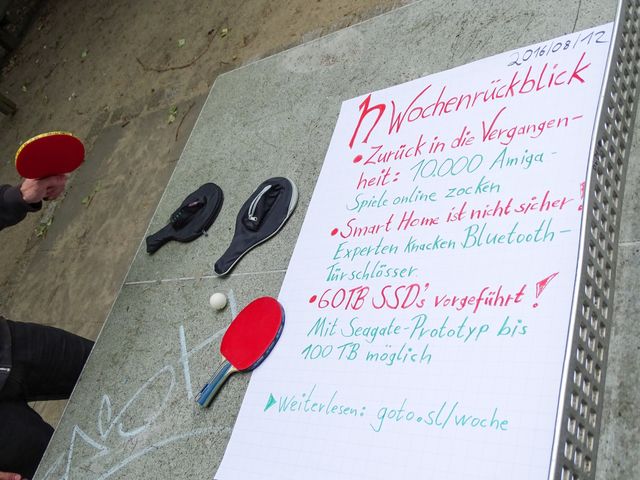 2016/08/12
Wochenrückblick
• Zurück in die Vergangen-
heit: 10.000 Amiga-
Spiele online zocken
• Smart Home ist nicht sicher!
Experten knacken Bluetooth-
Türschlösser.
• 60TB SSD's vorgeführt!
Mit Seagate-Prototyp bis
100 TB möglich
Weiterlesen: goto.sl/woche